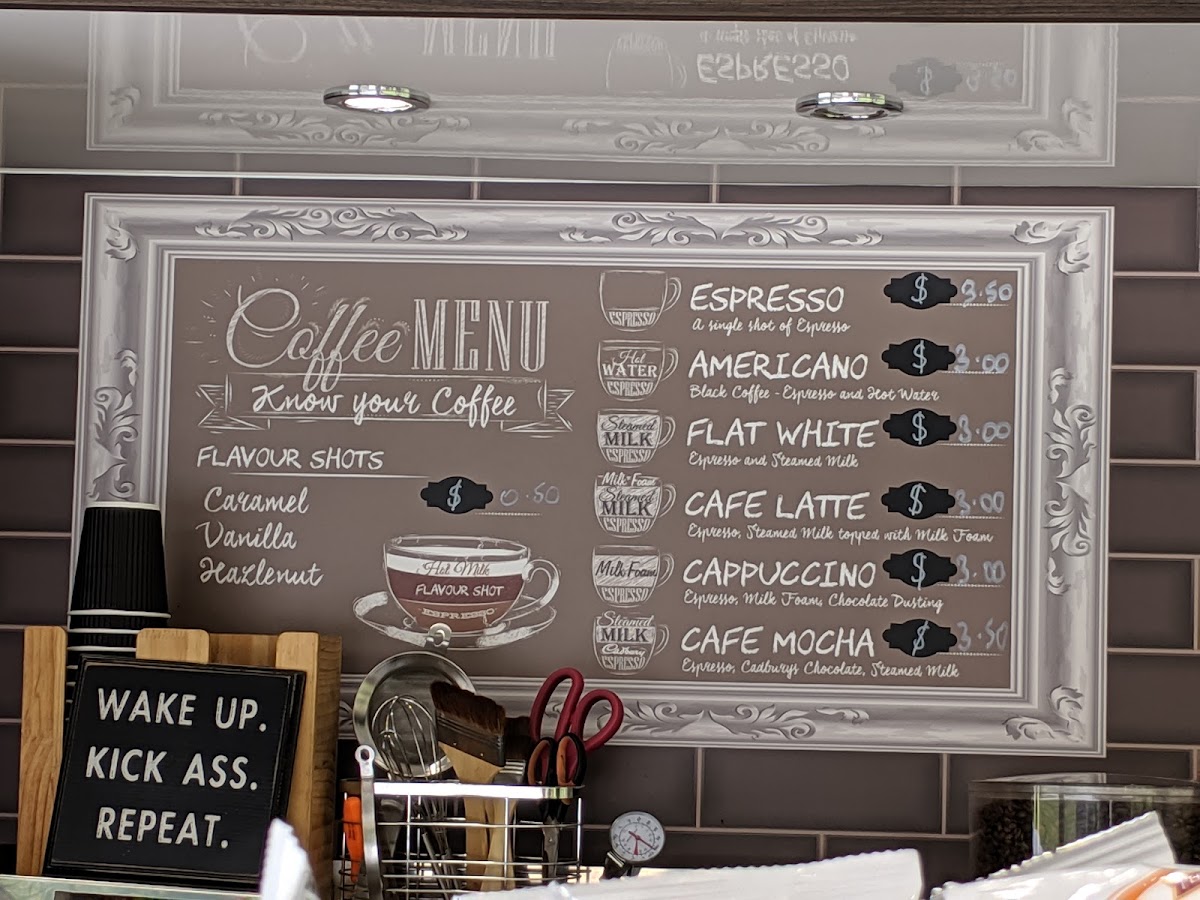 Coffee MENU
Know your Coffee
FLAVOUR SHOTS
Caramel
Vanilla
Hazlenut
$ 0.50
Hot Milk
FLAVOUR SHOT
ESPRESSO
ESPRESSO
ESPRESSO $ 3.50
A single shot of Espresso
Hot
WATER
ESPRESSO
AMERICANO $ 3.00
Black Coffee - Espresso and Hot Water
Steamed
MILK
ESPRESSO
FLAT WHITE $ 3.00
Espresso and Steamed Milk
Milk Foam
Steamed
MILK
ESPRESSO
CAFE LATTE $ 3.00
Espresso, Steamed Milk topped with Milk Foam
Milk Foam
ESPRESSO
CAPPUCCINO $ 3.00
Espresso, Milk Foam, Chocolate Dusting
Steamed
MILK
Cadbury
ESPRESSO
CAFE MOCHA $ 3.50
Espresso, Cadburys Chocolate, Steamed Milk
WAKE UP.
KICK ASS.
REPEAT.